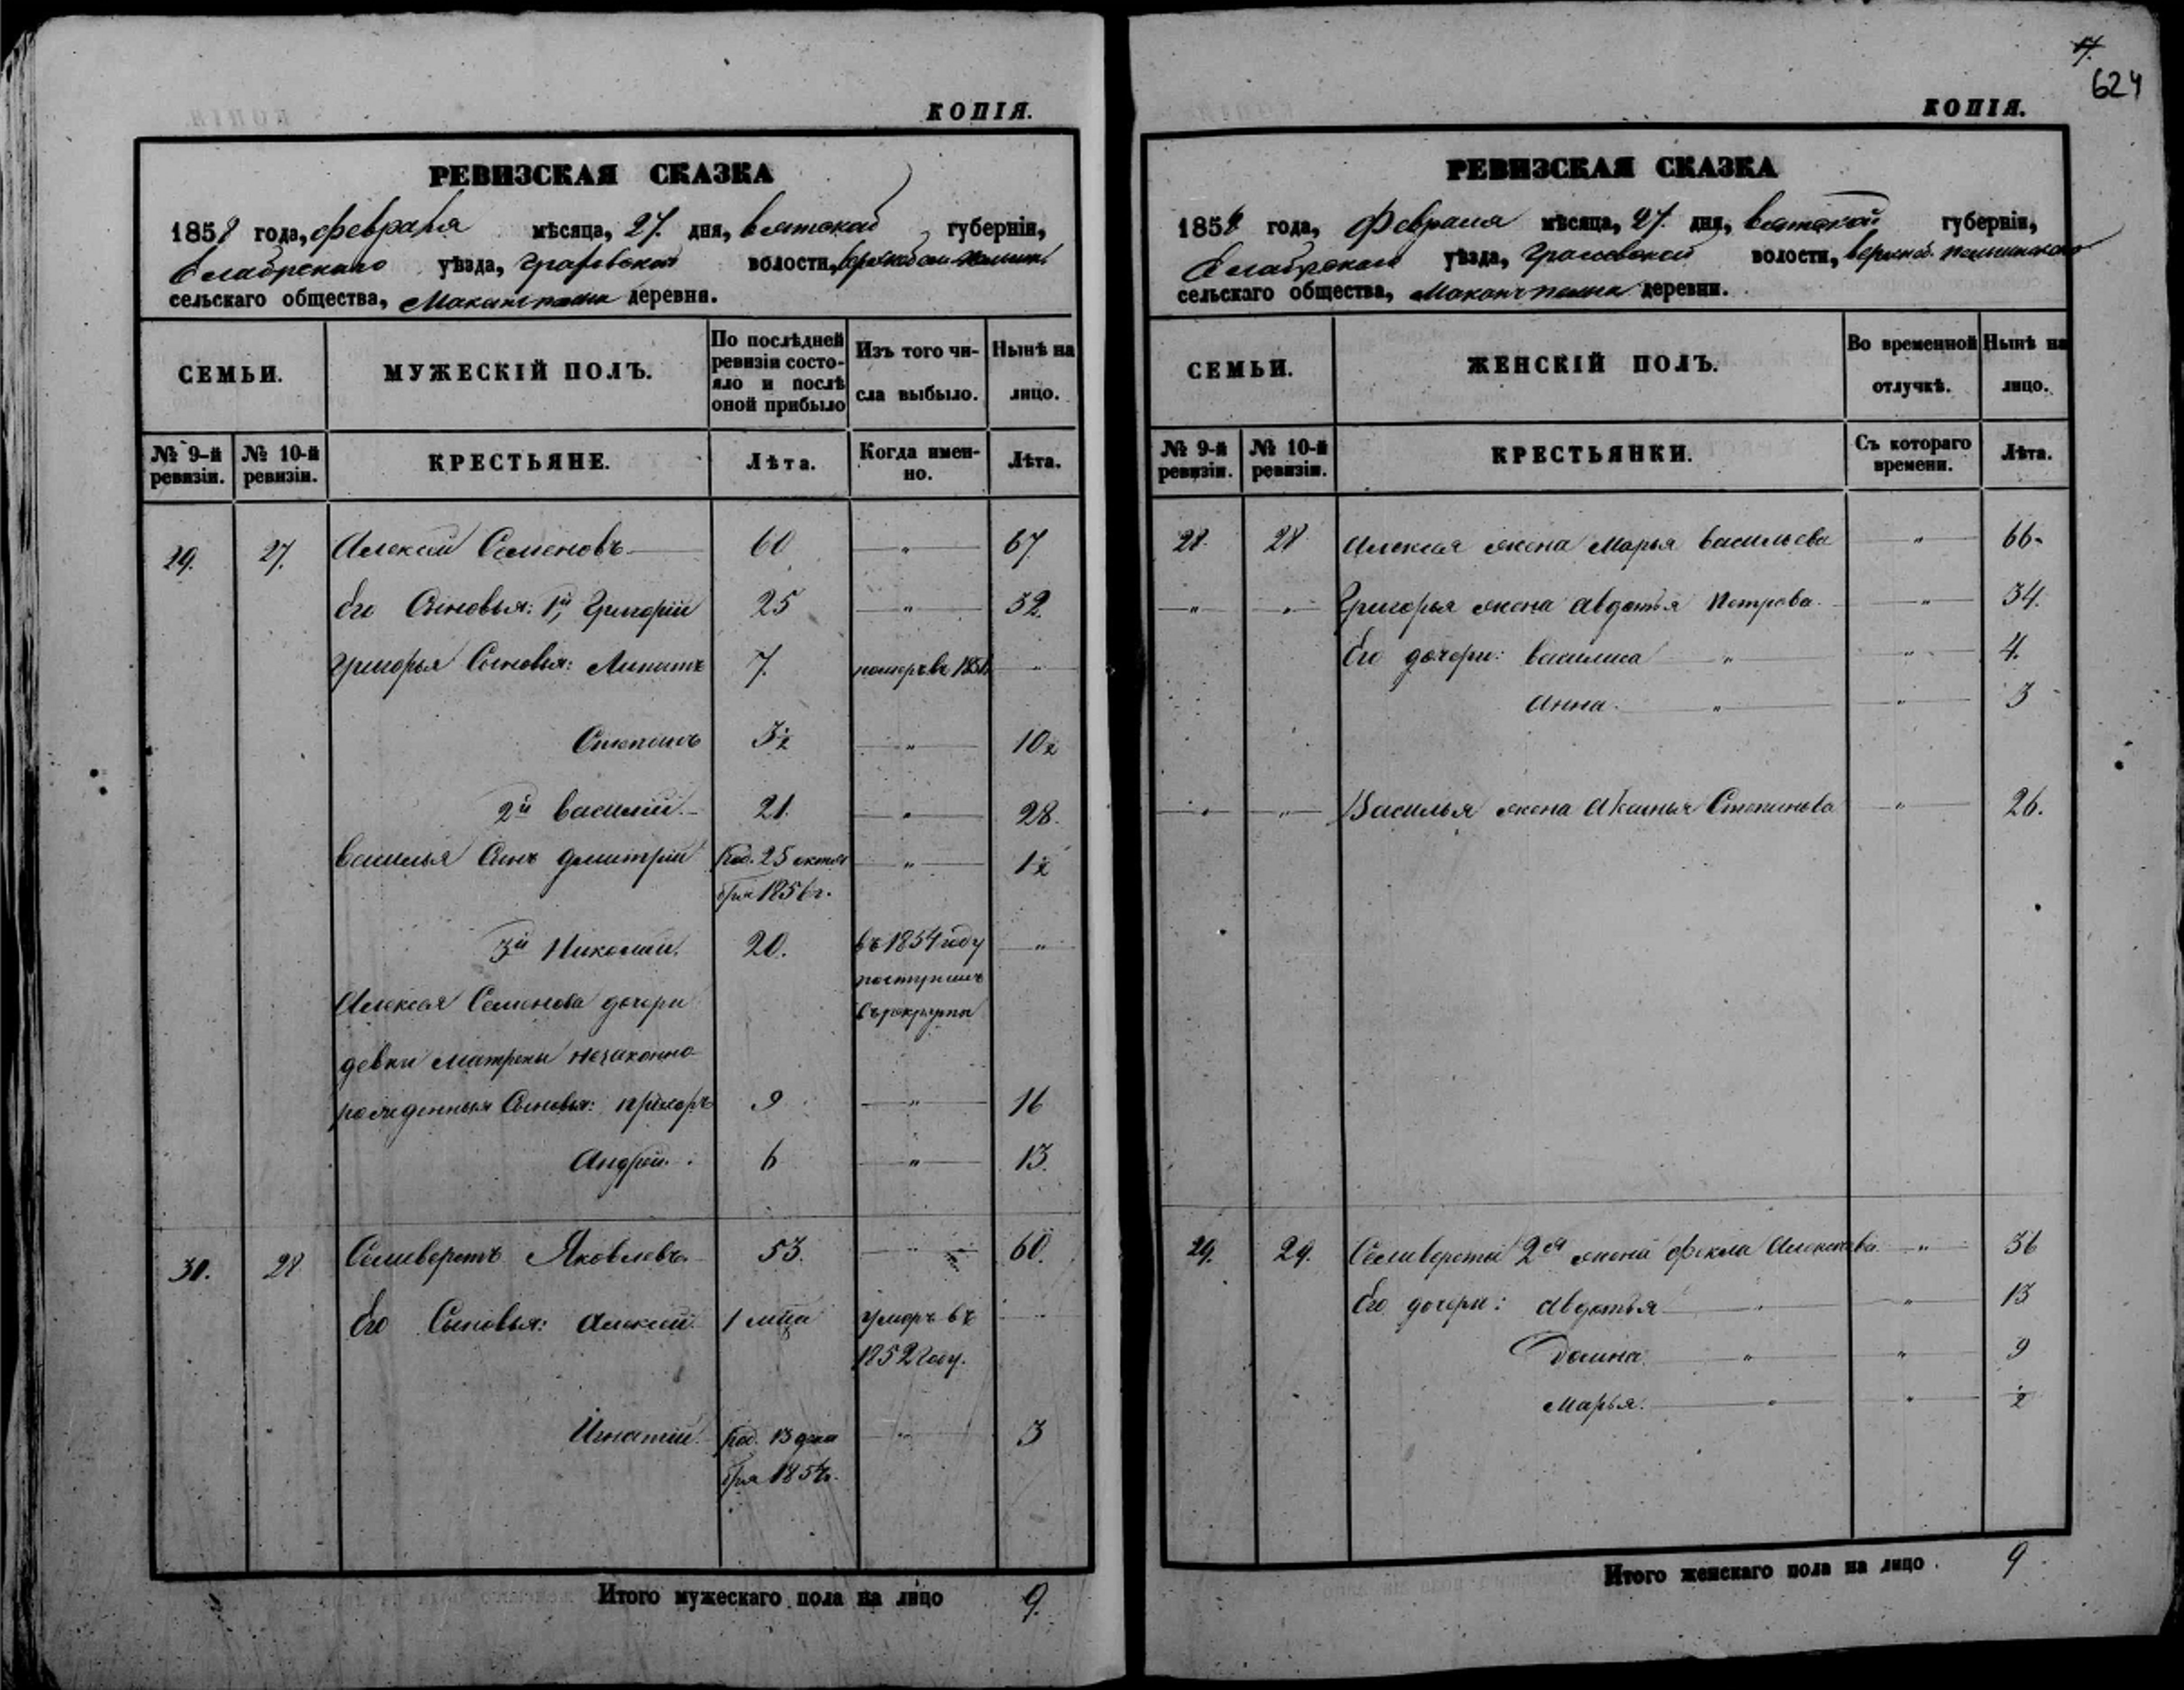 КОПІЯ.
РЕВИЗСКАЯ СКАЗКА
1858 года, февраля мѣсяца, 27. дня, вятской губерніи,
Елабужскаго уѣзда, Граховской волости,
сельскаго общества, деревня.
СЕМЬИ.
МУЖЕСКІЙ ПОЛЪ.
По послѣдней ревизіи состо-
яло и послѣ
оной прибыло
Изъ того чи-
сла выбыло.
Нынѣ на
лицо.
№ 9-й ревизіи.
№ 10-й ревизіи.
КРЕСТЬЯНЕ.
Лѣта.
Когда имен-
но.
Лѣта.
29. 27. Алексей Семеновъ 60 " 67
Его Сыновья: 1й, Григорій 25 " 32.
Григорья Сыновья: Липатъ 7. померъ въ "
Степанъ 3½ " 10½
2й Василій. 21. " 28.
Василья Сынъ Дмитрій Род. 25 октя " 1½
бря 1856 г.
3й Николай. 20. въ 1854 году "
поступилъ
Алексея Семенова дочери
въ рекруты
девки Матрены незаконно
рожденныя Сыновья: Прохоръ 9 " 16
Андрей. 6 " 13.
30. 28 Селиверстъ Яковлевъ. 53. " 60.
Его Сыновья: Алексей. 1 умеръ въ "
1852 году.
Игнатій. Род. 13 дека " 3
бря 1854 г.
Итого мужескаго пола на лицо 9.
17.
624
КОПІЯ.
РЕВИЗСКАЯ СКАЗКА
1858 года, Февраля мѣсяца, 27. дня, Вятской губерніи,
Елабужскаго уѣзда, Граховской волости,
сельскаго общества, деревни.
СЕМЬИ.
ЖЕНСКІЙ ПОЛЪ.
Во временной
отлучкѣ.
Нынѣ на
лицо.
№ 9-й ревизіи.
№ 10-й ревизіи.
КРЕСТЬЯНКИ.
Съ котораго
времени.
Лѣта.
28. 28 Алексея жена Марья Васильева " 66.
" " Григорья жена Авдотья Петрова. " 34.
Его дочери: Василиса " " 4.
Анна. " " 3
" " Василья жена Степанова " 26.
29. 29. Селиверста 2я жена Фекла Алексеева. " 36
Его дочери: Авдотья " " 13
Домна. " " 9
Марья. " " ½
Итого женскаго пола на лицо. 9